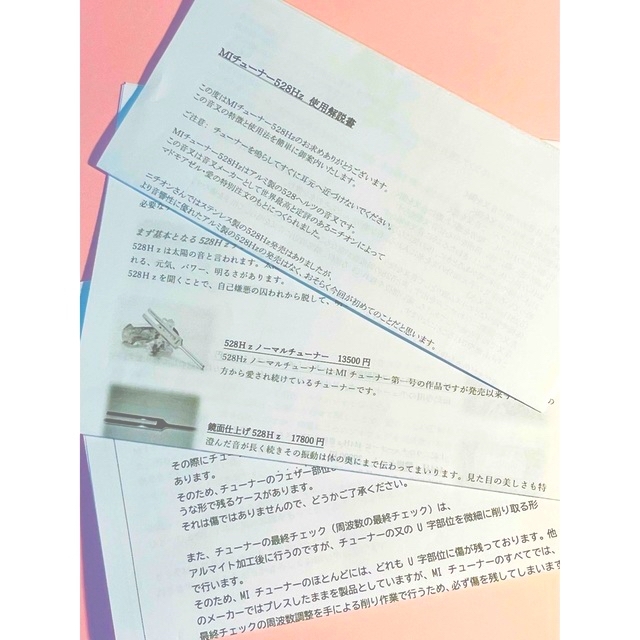 MIチューナー528Hz 使用解説書
この度はMIチューナー528Hzのお求めありがとうございます。
この音叉の特徴と使用法を簡単に御案内いたします。
ご注意： チューナーを鳴らしてすぐに耳元へ近づけないでください。
MIチューナー528Hzはアルミ製の528ヘルツの音叉です。
この音叉は音叉メーカーとして世界最高と定評のあるニチオンによって
マドモアゼル・愛の特別注文のもとにつくられました。
ニチオンさんではステンレス製の528Hz発売はありましたが、
より音響性に優れたアルミ製の528Hzの発売はなく、おそらく今回が初めてのことだと思います。
必要な
まず基本となる528Hz
528Hzは太陽の音と言われます。
れる、元気、パワー、明るさがあります。
528Hzを聞くことで、自己嫌悪の囚われから脱して、
528Hzノーマルチューナー 13500円
528HzノーマルチューナーはMIチューナー第一号の作品ですが発売以来
方から愛され続けているチューナーです。
の
鏡面仕上げ528Hz 17800円
澄んだ音が長く続きその振動は体の奥にまで伝わってまいります。見た目の美しさも特
その際にチュー
あります。
そのため、チューナーのフェザー部位の
うな形で残るケースがあります。
それは傷ではありませんので、どうかご了承ください。
また、チューナーの最終チェック（周波数の最終チェック）は、
アルマイト加工後に行うのですが、チューナーの又のU字部位を微細に削り取る形
で行います。
そのため、MIチューナーのほとんどには、どれもU字部位に傷が残っております。他
のメーカーではプレスしたままを製品としていますが、MIチューナーのすべてでは、
最終チェックの周波数調整を手による削り作業で行うため、必ず傷を残してしまいます